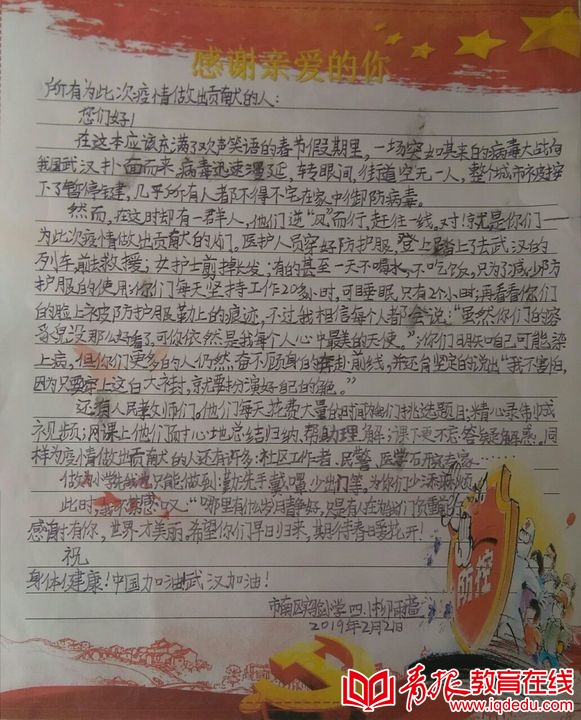 感谢亲爱的你
所有为此次疫情做出贡献的人：
您们好！
在这本应该充满了欢声笑语的春节假期里，一场突如其来的病毒大战向
我国武汉扑面而来，病毒迅速漫延，转眼间，街道空无一人，整个城市被按
下了暂停键，几乎所有人都不得不宅在家中御防病毒。
然而，在这时却有一群人，他们逆“风”而行，赶往一线，对！就是你们——
为此次疫情做出贡献的人们。医护人员穿好防护服，登上踏上了去武汉的
列车，前去救援；女护士剪掉长发；有的甚至一天不喝水，不吃饭，只为了减少防
护服的使用；你们每天坚持工作20多小时，可睡眠，只有2个小时；再看看你们
的脸上被防护服勒上的痕迹，不过我相信每个人都会说：“虽然你们的容
貌没那么好看了，可你依然是我每个人心中最美的天使。”；你们明知自己可能染
上病，但你们更多的人仍然奋不顾身的奔赴前线，并还有坚定的说出“我不害怕，
因为只要穿上这白大褂，就要扮演好自己的角色。”
还有人民教师们。他们每天花费大量的时间给我们挑选题目；精心录制成
视频；网课上他们耐心地总结归纳，帮助理解；课下更不忘答疑解惑。同
样为疫情做出贡献的人还有许多：社区工作者、民警、医学研究专家……
做为小学生我也只能做到：勤洗手，戴口罩，少出门等，为你们少添麻烦。
此时，我不禁感叹：“哪里有什么岁月静好，只是有人在替我们负重前行”
感谢有你，世界才美丽，希望你们早日归来，期待春日暖花开！
祝
身体健康！中国加油！武汉加油！
市南区实验小学 四.
2019年2月2日
防控
青报教育在线
www.iqdedu.com